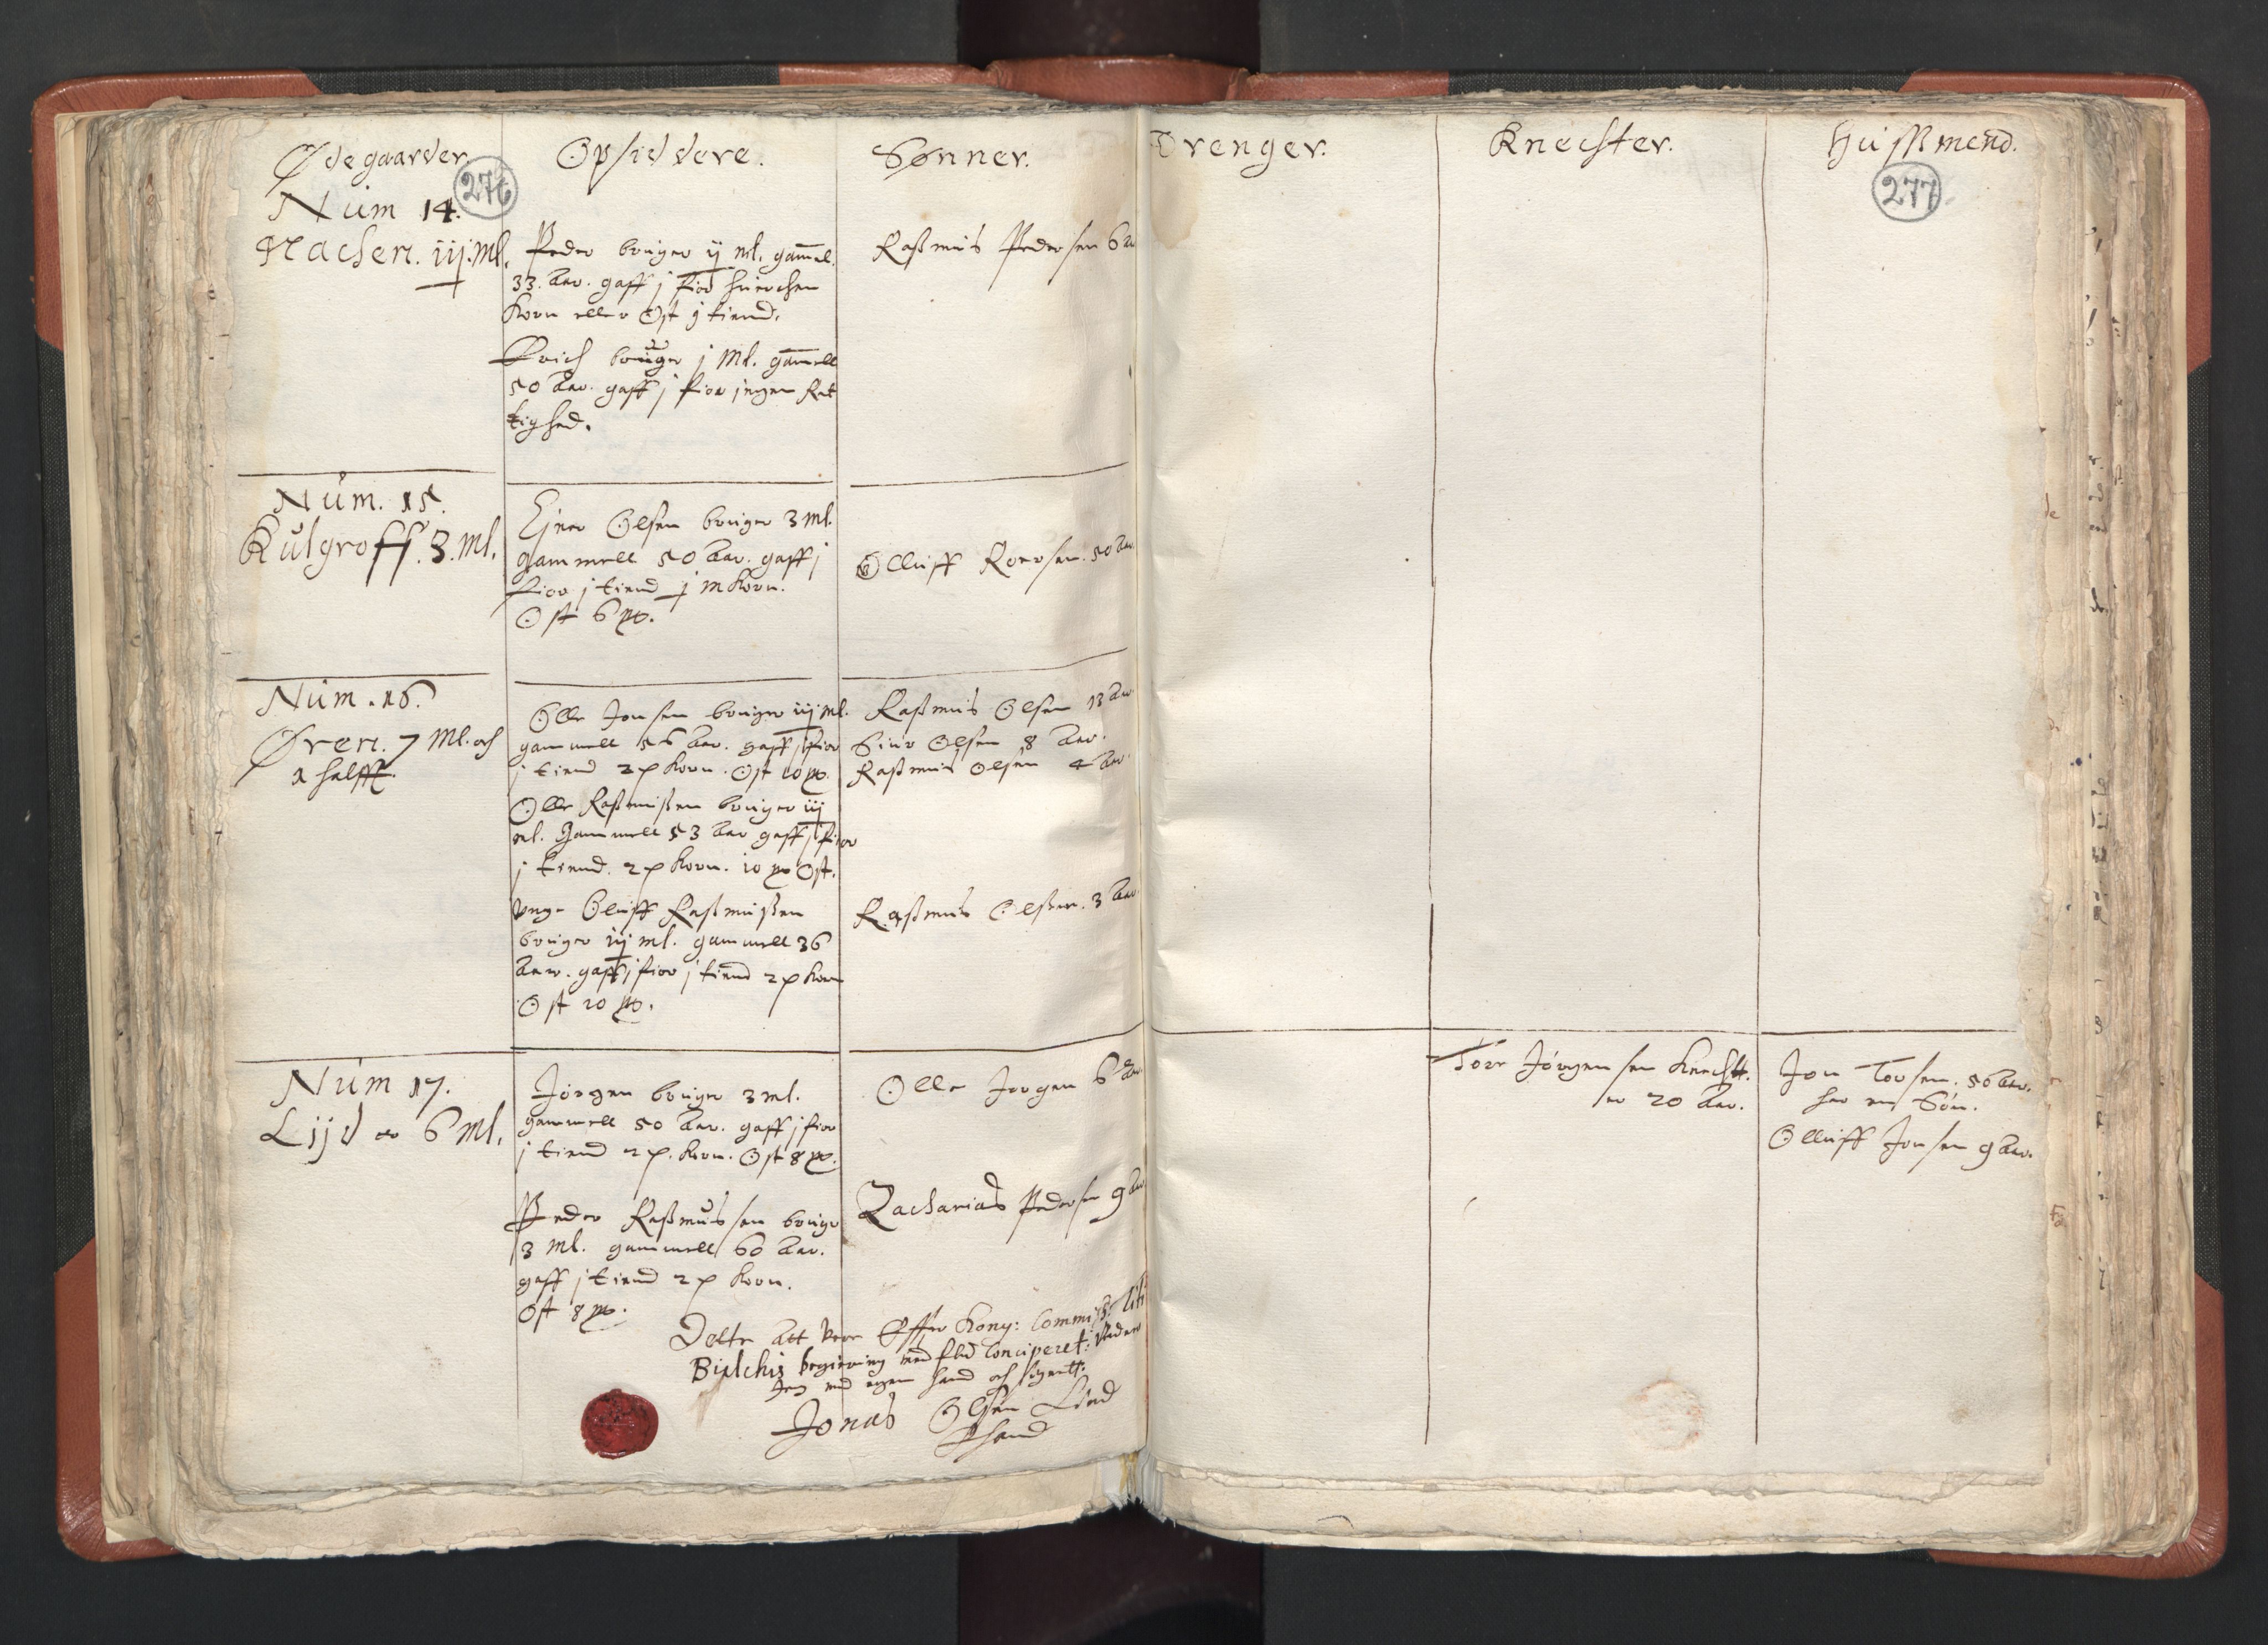 Ødegaarder.
Opsiddere.
Sønner.
Drenger.
Knechter.
Hussmend.
276
277
Num 14.
Nachen. iij. Ml.
Peder bruger ij ml. gamel.
33. Aar. gaff j fior
Korn eller Ost j tiend.
Erich bruger j Ml. gamell
50 Aar. gaff j fior jngen Ret
tighed.
Rassmus Pedersen 6
Num. 15.
Kulgroff. 3. Ml.
Ejner Olsen bruger 3 ml.
gammell 50 Aar. gaff j
fior j tiend j m Korn.
Ost 6 pd.
Olluff 50 Aar
Num. 16.
Øren. 7 Ml. och
1 halff.
Olle Jonsen bruger iij ml.
gammell 56 Aar. gaff j fior
j tiend 2 p Korn. Ost 10 pd.
Olle Rassmussen bruger iij
ml. Gammell 53 Aar gaff j fior
j tiend. 2 p Korn. 10 pd Ost.
Unge Oluff Rassmussen
bruger iij ml. gammell 36
Aar. gaff j fior j tiend 2 p Korn
Ost 10 pd.
Rassmus Olsen 13 Aar
Siur Olsen 8 Aar.
Rassmus Olsen 4 Aar
Rassmus Olssen. 3 Aar
Num 17.
Lijd er 6 Ml.
Jørgen bruger 3 ml.
gammell 50 Aar. gaff j fior
j tiend 2 p. Korn. Ost 8 pd.
Peder Rassmussen bruger
3 Ml. gammell 60 Aar.
gaff j tiend 2 p Korn.
Ost 8 pd.
Olle Jørgen 6 Aar
Zacharias Pedersen 9 Aar
Tore Jørgensen Knecht.
er 20 Aar.
Jon Torsen. 56 Aar.
har en Søn.
Olluff Jonsen 9 Aar.
Dette att vere Effter Kong: Commiss:
Bielchis begiering med flid Conciperet:
Jeg med egen hand och signett.
Jonas Olsen Lind
Ehand